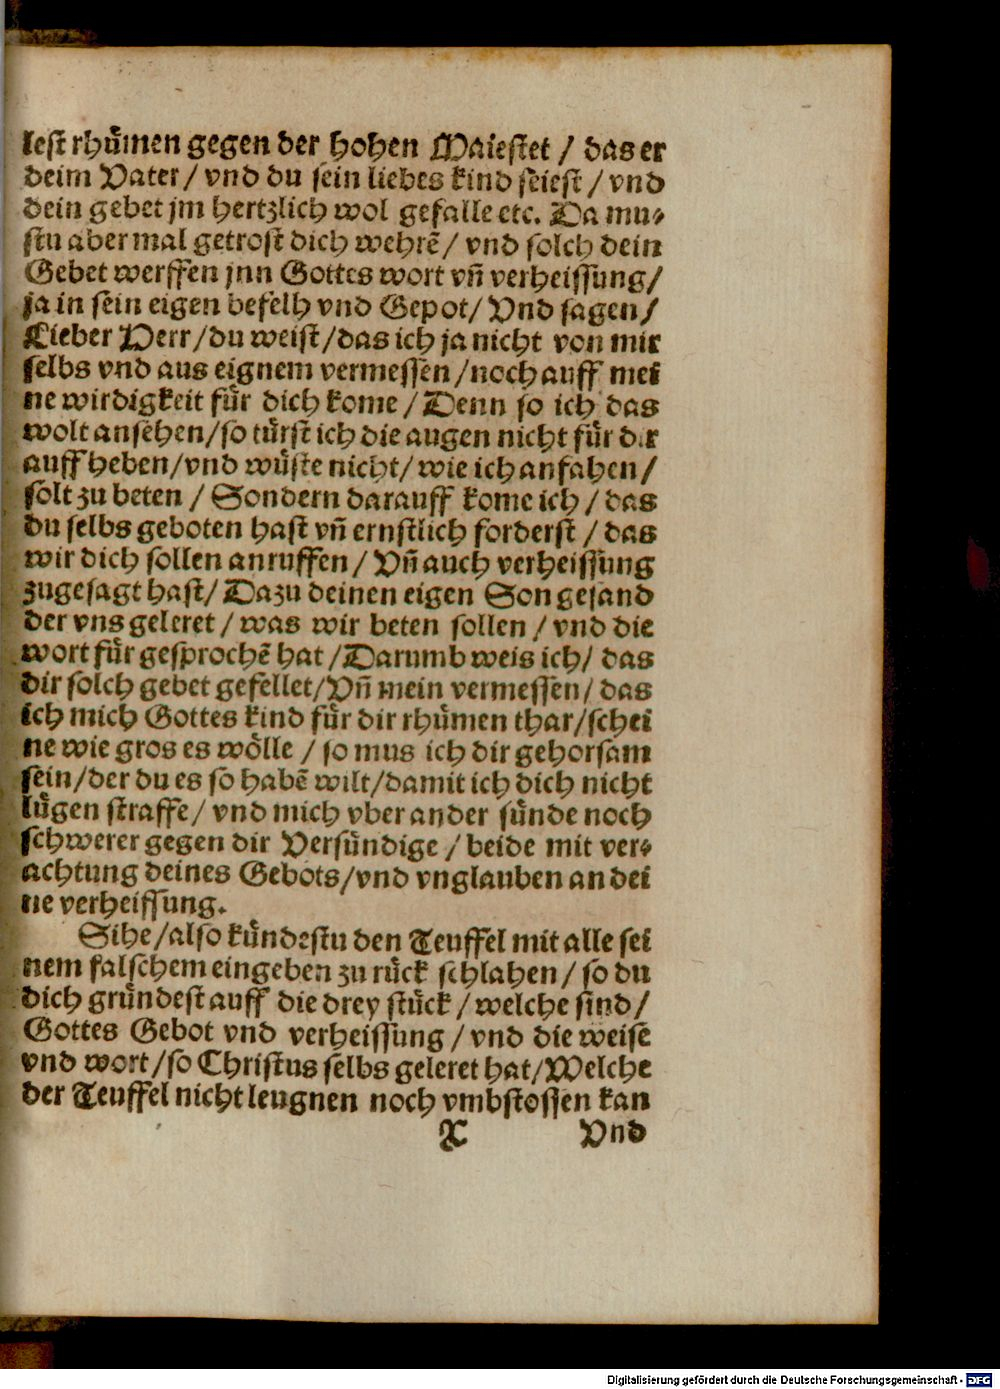 lest rhuͤmen gegen der hohen Maiestet / das er
deim Vater / vnd du sein liebes kind seiest / vnd
dein gebet jm hertzlich wol gefalle etc. Da mu⸗
stu aber mal getrost dich wehrē / vnd solch dein
Gebet werffen jnn Gottes wort vn̄ verheissung /
ja in sein eigen befelh vnd Gepot / Vnd sagen /
Lieber Herr / du weist / das ich ja nicht von mir
selbs vnd aus eignem vermessen / noch auff mei
ne wirdigkeit fuͤr dich kome / Denn so ich das
wolt ansehen / so tuͤrst ich die augen nicht fuͤr dir
auff heben / vnd wuͤste nicht / wie ich anfahen /
solt zu beten / Sondern darauff kome ich / das
du selbs geboten hast vn̄ ernstlich forderst / das
wir dich sollen anruffen / Vn̄ auch verheissung
zugesagt hast / Dazu deinen eigen Son gesand
der vns geleret / was wir beten sollen / vnd die
wort fuͤr gesprochē hat / Darumb weis ich / das
dir solch gebet gefellet / Vn̄ mein vermessen / das
ich mich Gottes kind fuͤr dir rhuͤmen thar / schei
ne wie gros es woͤlle / so mus ich dir gehorsam
sein / der du es so habē wilt / damit ich dich nicht
luͤgen straffe / vnd mich vber ander suͤnde noch
schwerer gegen dir Versuͤndige / beide mit ver⸗
achtung deines Gebots / vnd vnglauben an dei
ne verheissung.
Sihe / also kuͤndestu den Teuffel mit alle sei
nem falschem eingeben zu ruͤck schlahen / so du
dich gruͤndest auff die drey stuͤck / welche sind /
Gottes Gebot vnd verheissung / vnd die weise
vnd wort / so Christus selbs geleret hat / Welche
der Teuffel nicht leugnen noch vmbstossen kan
X Vnd
Digitalisierung gefördert durch die Deutsche Forschungsgemeinschaft - DFG